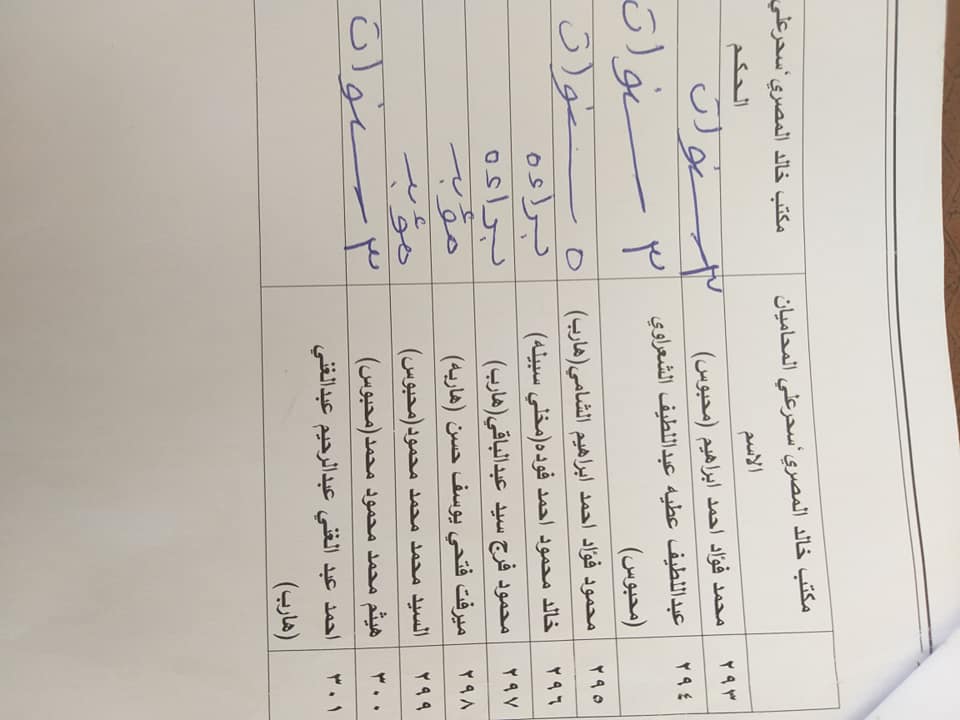 مكتب خالد المصري ،سحرعلي المحاميان مكتب خالد المصري ،سحرعلي
الاسم الحكم
٢٩٣ محمد فؤاد احمد ابراهيم (محبوس) ٣ سنوات
٢٩٤ عبداللطيف عطيه عبداللطيف الشعراوي ٣ سنوات
(محبوس)
٢٩٥ محمود فؤاد احمد ابراهيم الشامي(هارب) ٥ سنوات
٢٩٦ خالد محمود احمد فوده(مخلي سبيله) براءه
٢٩٧ محمود فرج سيد عبدالباقي(هارب) براءه
٢٩٨ ميرفت فتحي يوسف حسن (هاربه) مؤبد
٢٩٩ السيد محمد محمد محمود(محبوس) مؤبد
٣٠٠ هيثم محمد محمود محمد(محبوس) ٣ سنوات
٣٠١ احمد عبد الغني عبدالرحيم عبدالغني
(هارب)